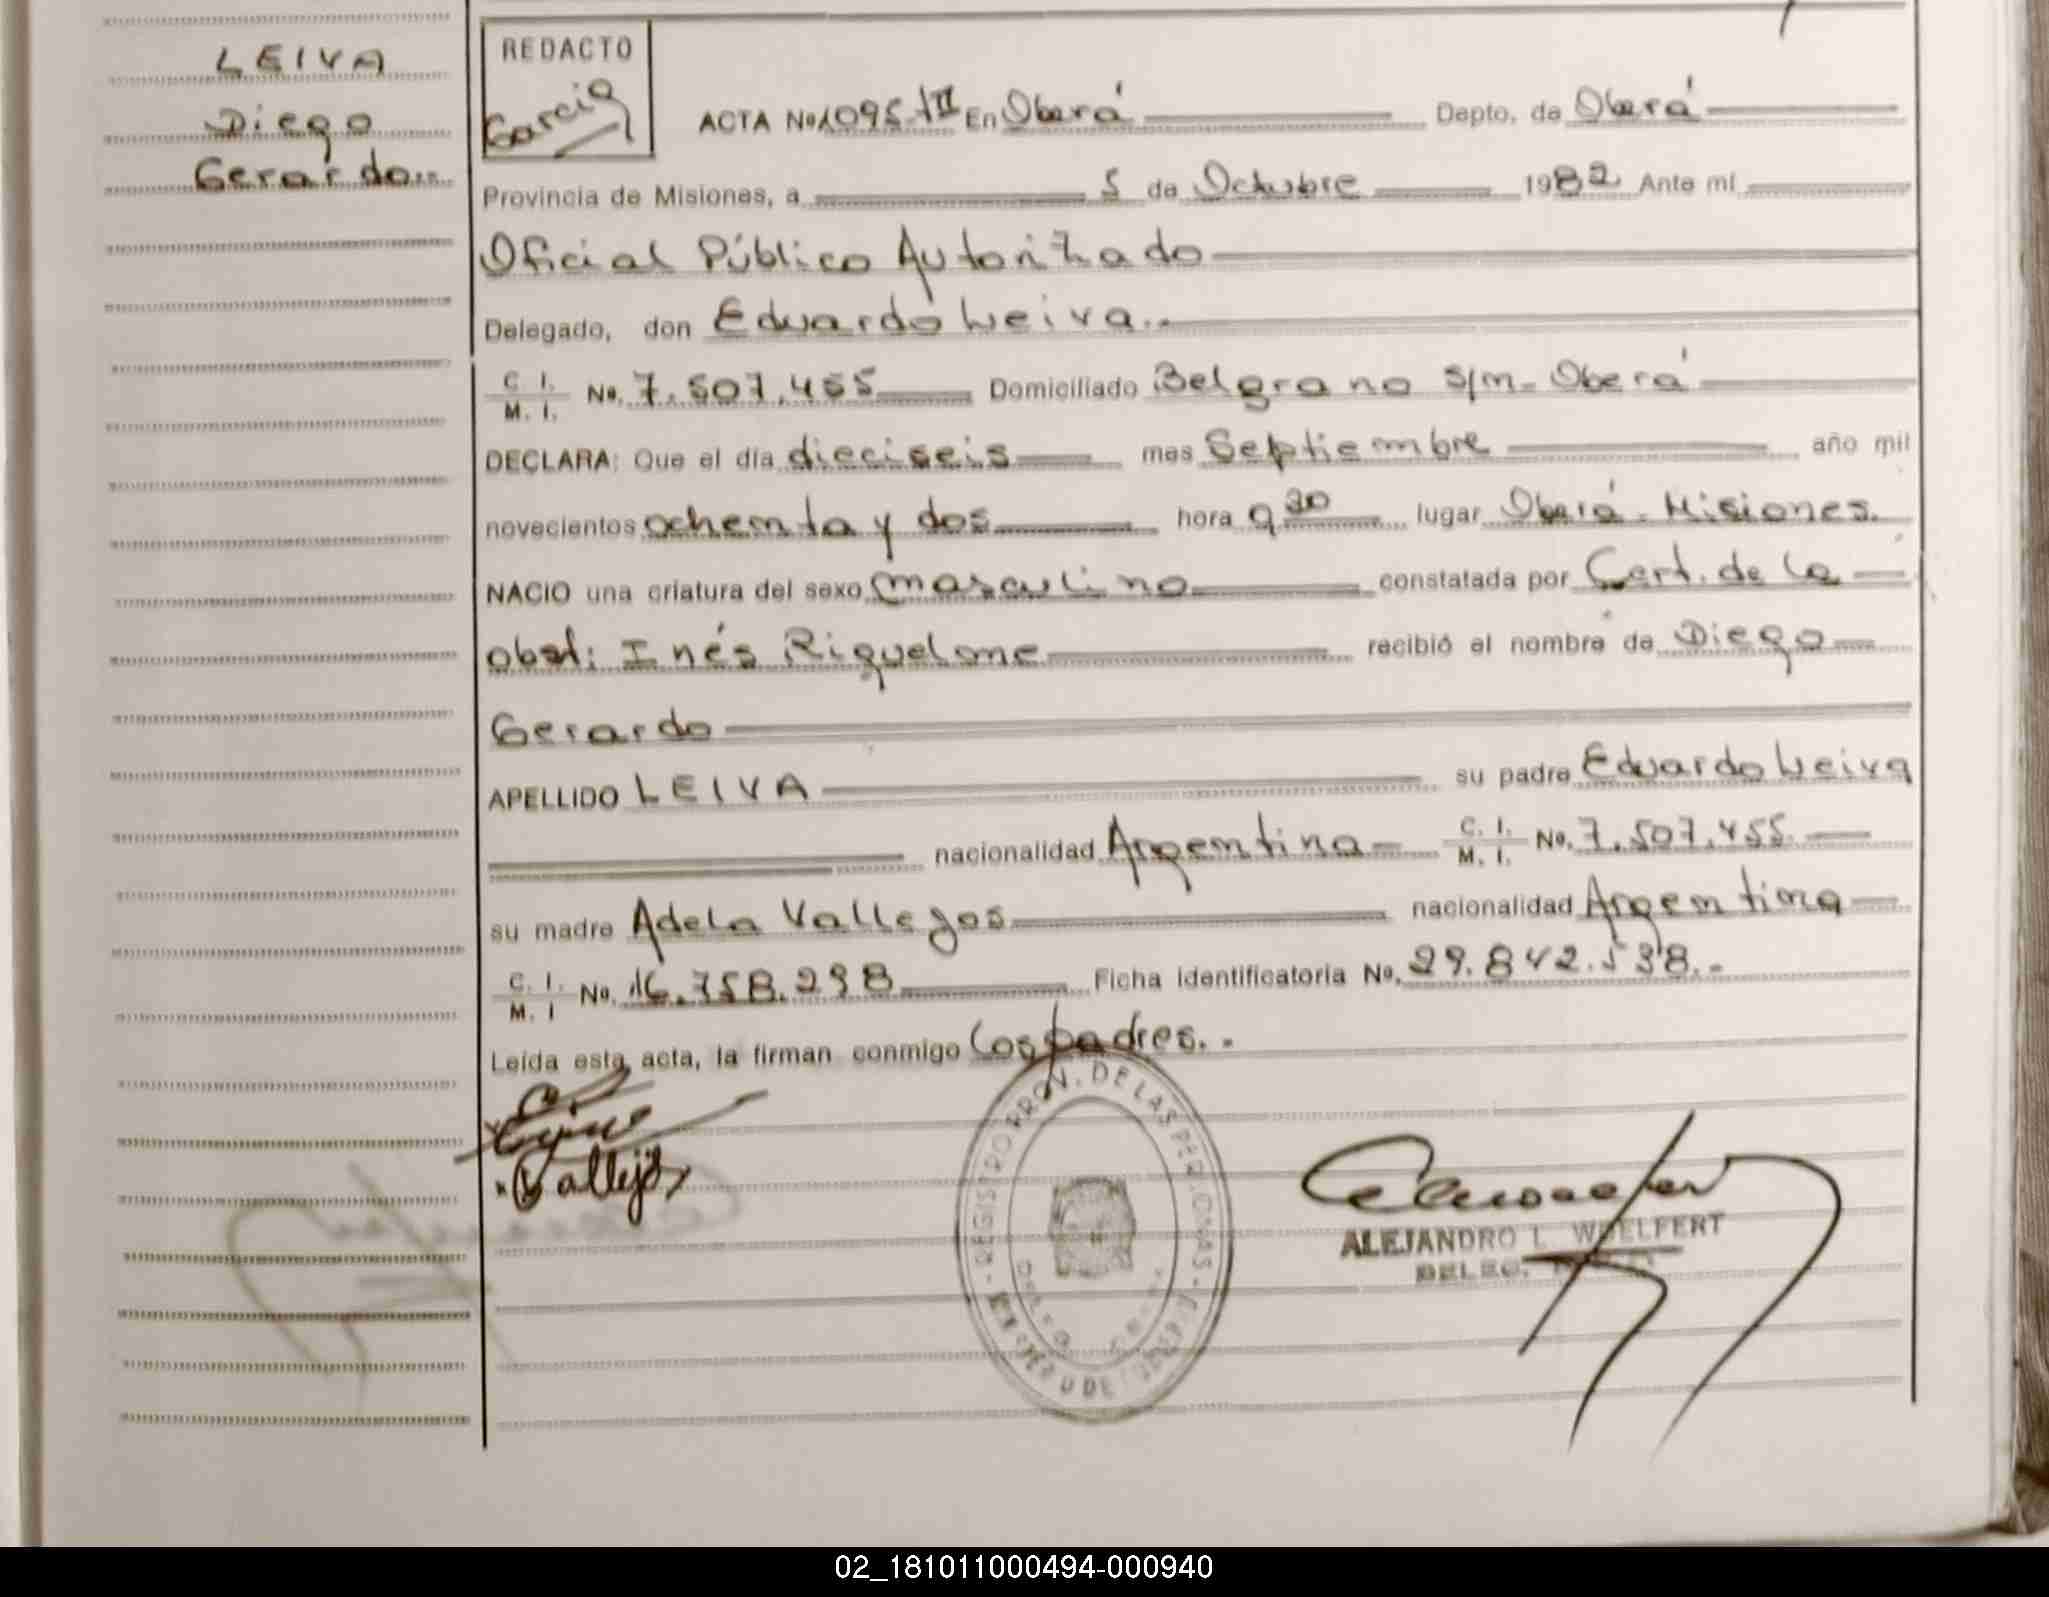 LEIVA
Diego
Gerardo..
REDACTO
Garcia
ACTA No 1095 tII En Oberá Depto. de Oberá
Provincia de Misiones, a 5 de Octubre 1982 Ante mi
Oficial Público Autorizado
Delegado, don Eduardo Leiva..
C. I. M. I. No. 7.507.455 Domiciliado Belgrano s/m- Oberá
DECLARA: Que el día dieciseis mes Septiembre año mil
novecientos ochenta y dos hora 9 30 lugar Oberá - Misiones.
NACIO una criatura del sexo masculino constatada por Cert. de la
obst: Inés Riquelme recibió el nombre de Diego
Gerardo
APELLIDO LEIVA su padre Eduardo Leiva
nacionalidad Argentina C. I. M. I. No. 7.507.455.
su madre Adela Vallejos nacionalidad Argentina
C. I. M. I No. 16.758.298 Ficha identificatoria No. 29.842.538.-
Leída esta acta, la firman conmigo los padres. -
Vallejos
REGISTRO PROV. DE LAS PERSONAS
ALEJANDRO L WOELFERT
DELEG.
02_181011000494-000940